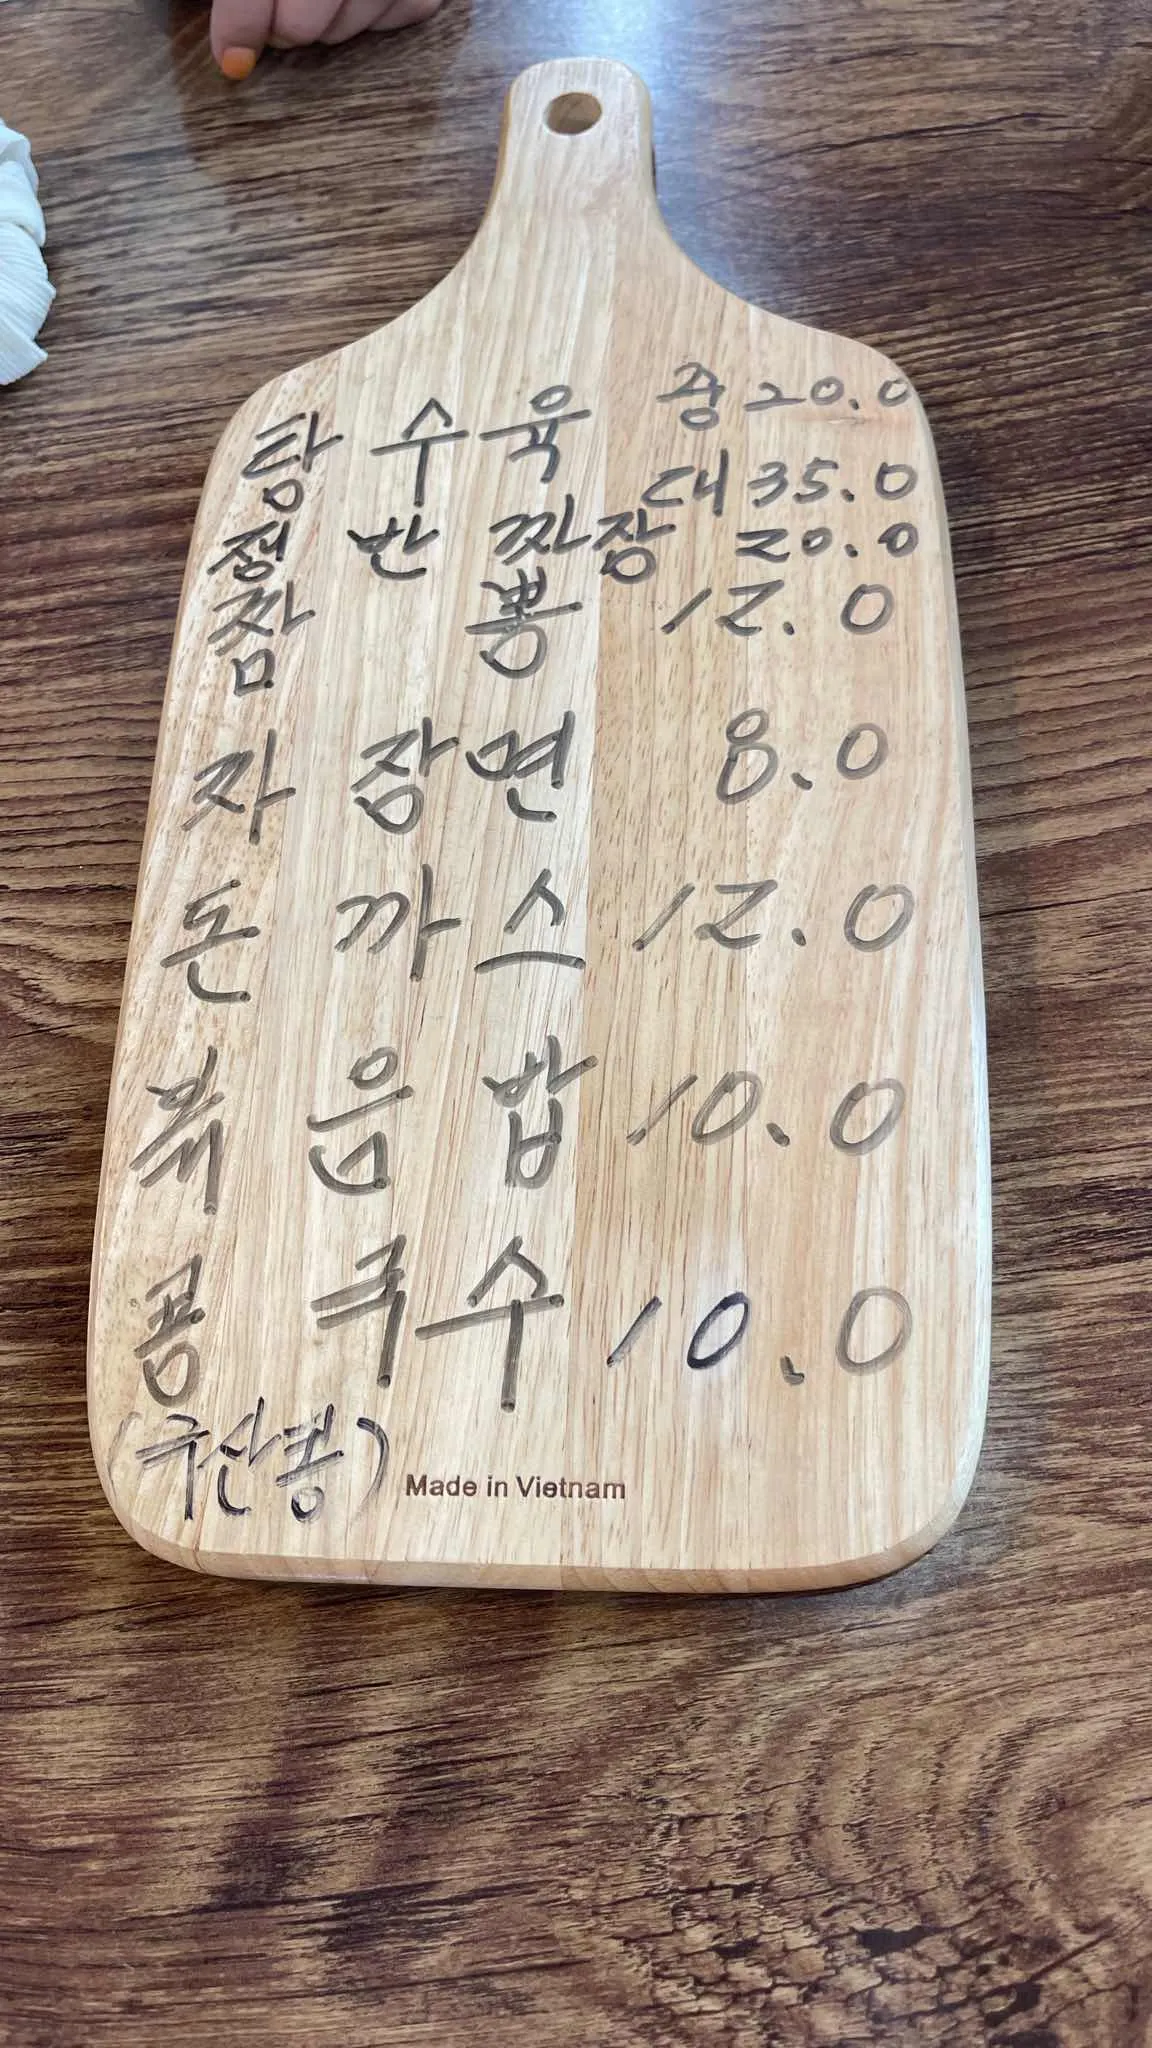 탕수육 중 20.0
대 35.0
정반 짜장 20.0
짬뽕 12.0
자장면 8.0
돈까스 12.0
볶음밥 10.0
콩국수 10.0
(국산콩)
Made in Vietnam